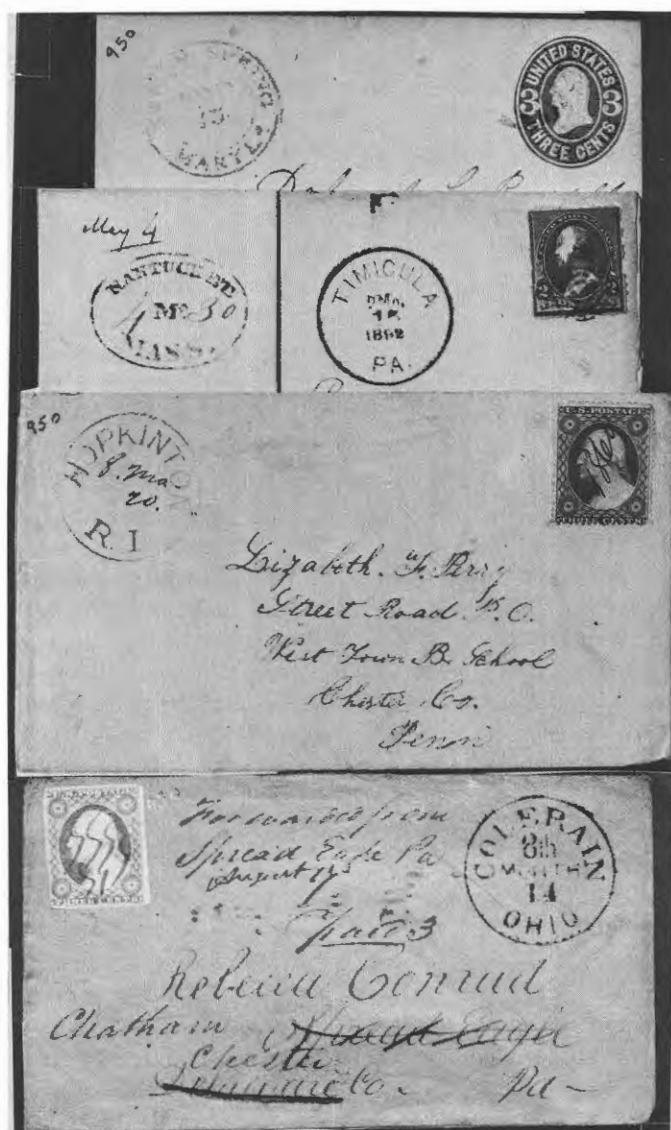 950
SPRING
13
MARYL
UNITED STATES
3 3
THREE CENTS
May 4
NANTUCKET
Mo 30
MASS.
TIMICULA
1892
PA.
2 2
950
HOPKINTON
8. Mo
20.
R. I
U.S. POSTAGE
THREE CENTS
Elizabeth. F. Perry
Street Road P. O.
West Town B. School
Chester Co.
Penn
Forwarded from
Spread Eagle Pa
August 17
Paid 3
COLERAIN
8th
MONTH
14
OHIO
THREE CENTS
Rebecca Conrad
Chatham Spread Eagle
Chester
Delaware Co- Pa-